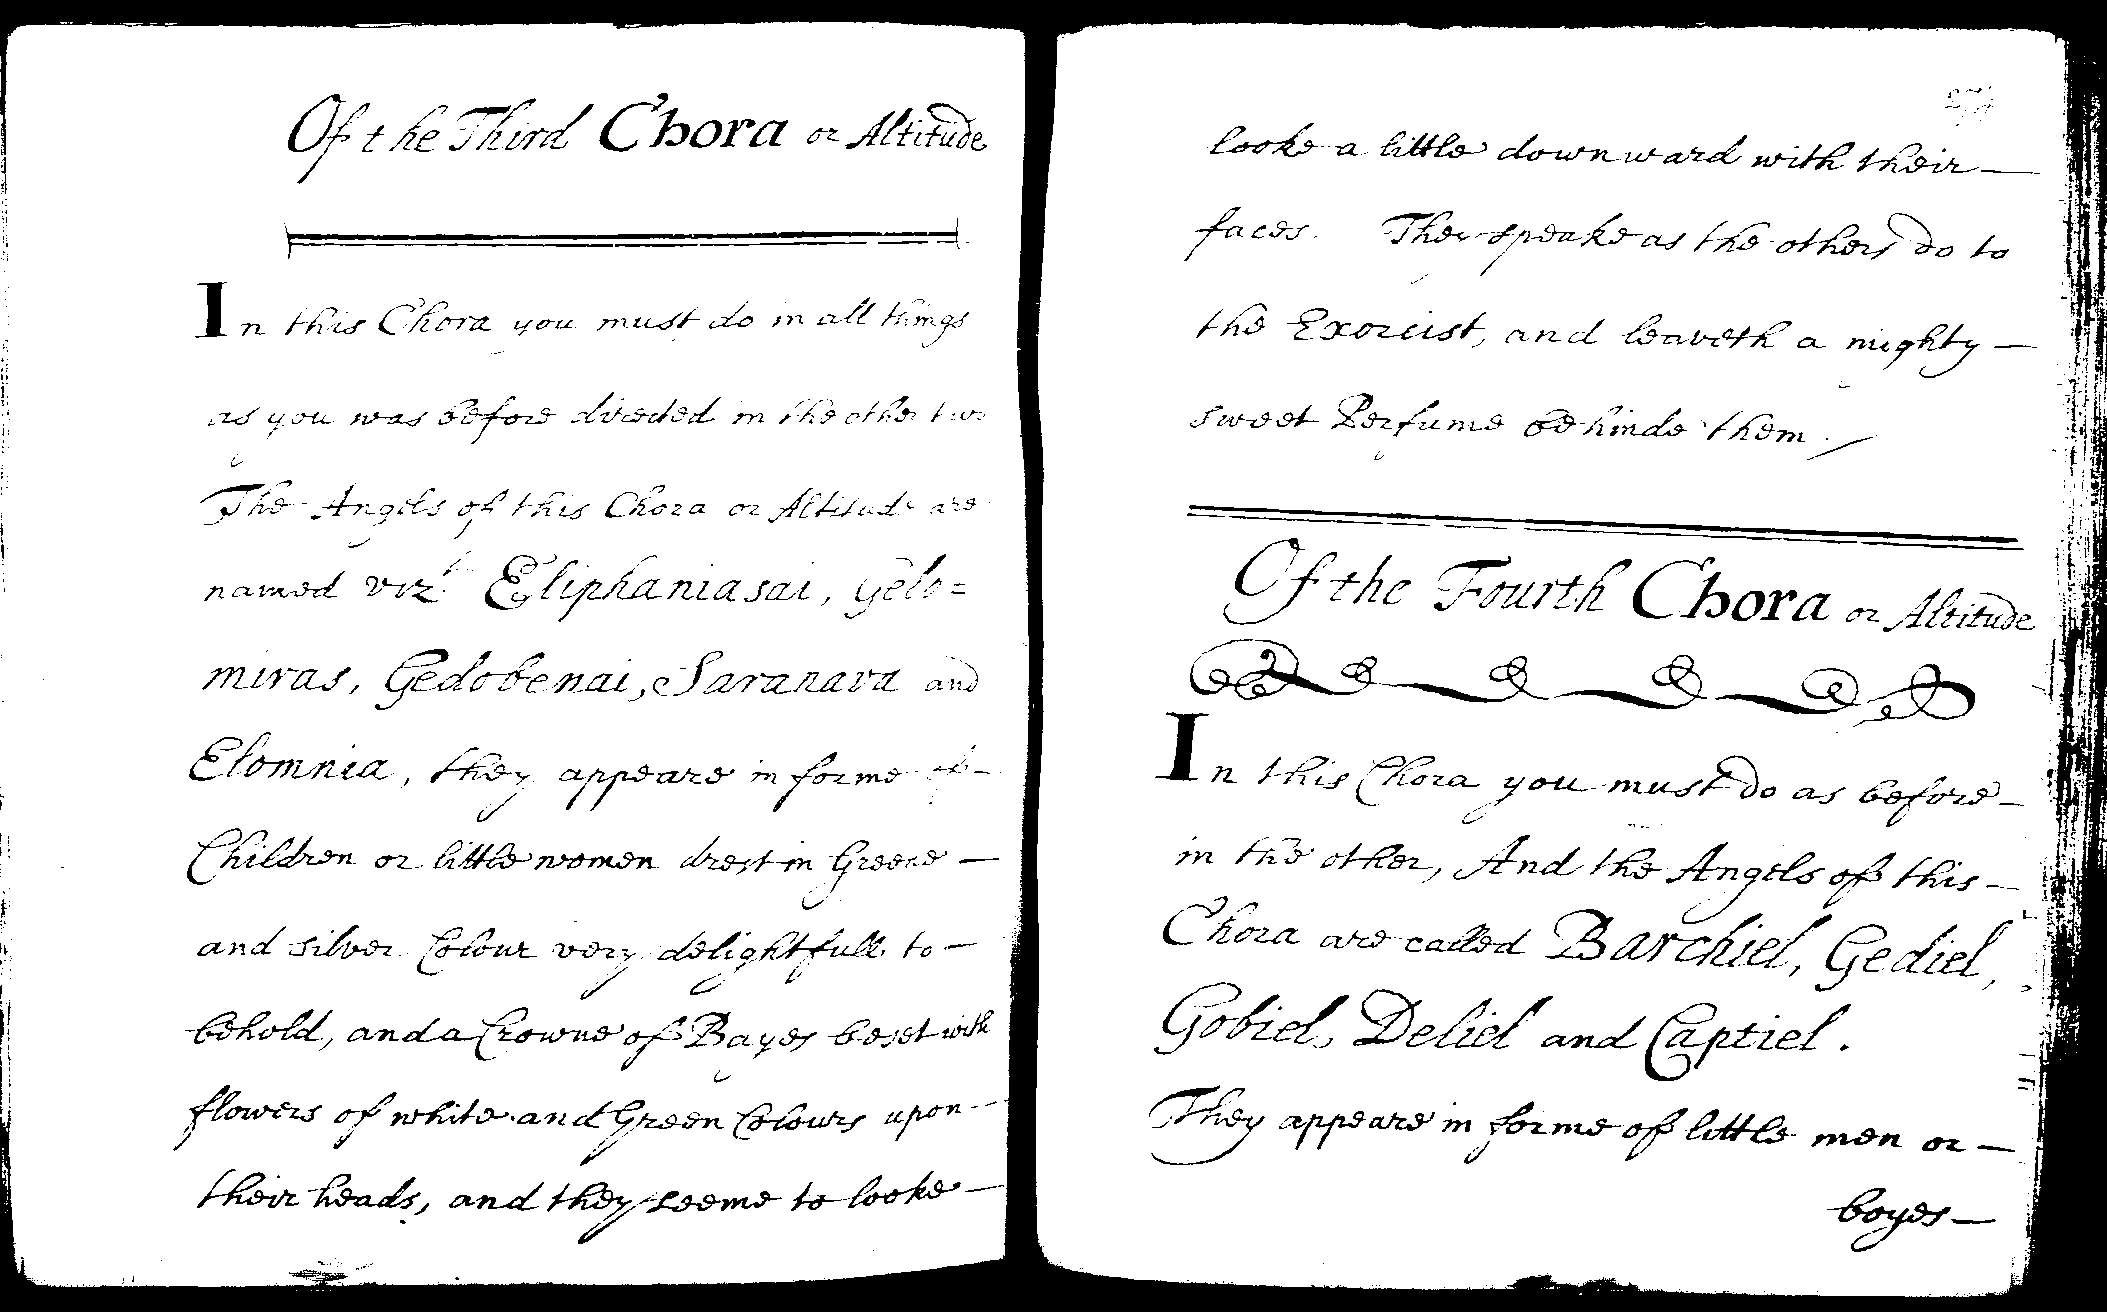 Of the Third Chora or Altitude
In this Chora you must do in all things
as you was before directed in the other two
The Angels of this Chora or Altitude are
named vizt. Eliphaniasai, Gelo=
miras, Gedobenai, Saranava and
Elomnia, they appeare in forme of-
Children or little women drest in Greene —
and silver Colour very delightfull to —
behold, and a Crowne of Bayes beset with
flowers of white and Green Colours upon —
their heads, and they seeme to looke —
looke a little downward with their —
faces. They speake as the others do to
the Exorcist, and leaveth a mighty —
sweet Perfume behinde them ⁄
Of the Fourth Chora or Altitude
In this Chora you must do as before —
in the other, And the Angels of this —
Chora are called Barchiel, Gediel,
Gobiel, Deliel and Captiel.
They appeare in forme of little men or —
boyes —